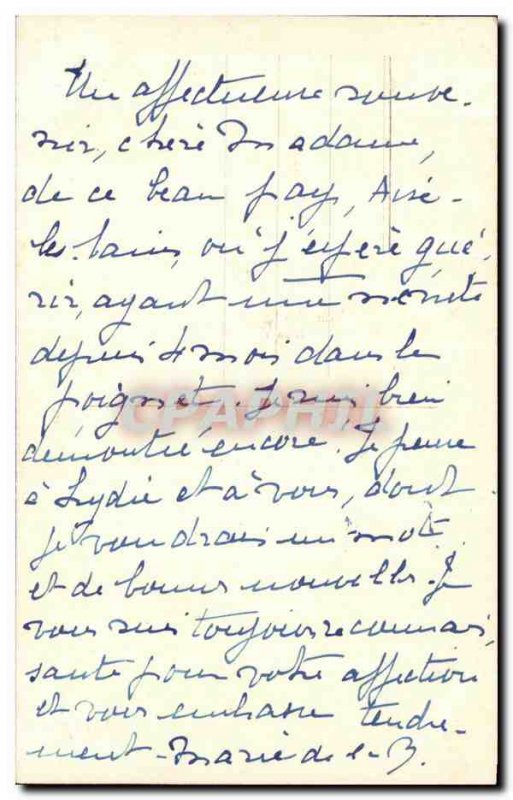 Un affectueux souve-
nir, chère Madame,
de ce beau pays, Aix-
les-bains, où j'espère gué-
rir, ayant une névrite
depuis 4 mois dans le
poignet. Je suis bien
démontée encore. Je pense
à Lydie et à vous, dont
je voudrais un mot
et de bonnes nouvelles. Je
vous suis toujours reconnais-
sante pour votre affection
et vous embrasse tendre-
ment - Marie de la B.
CPAPHIL